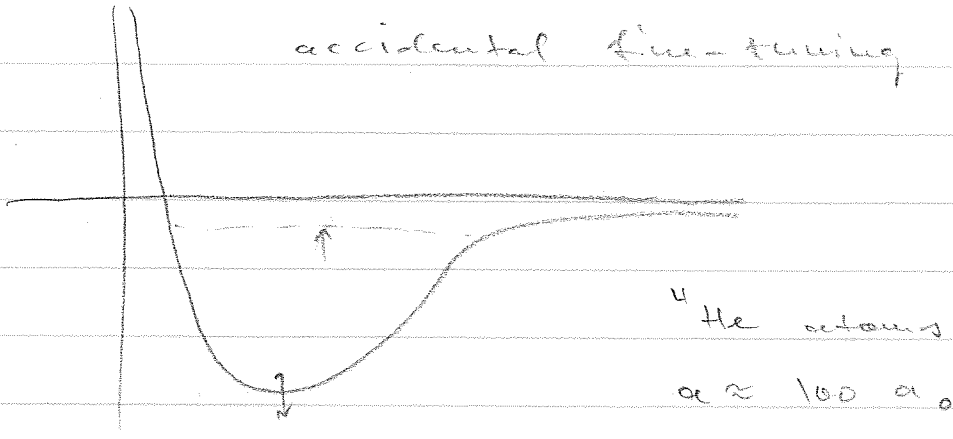 accidental fine-tuning
⁴He atoms
a ≈ 100 a₀